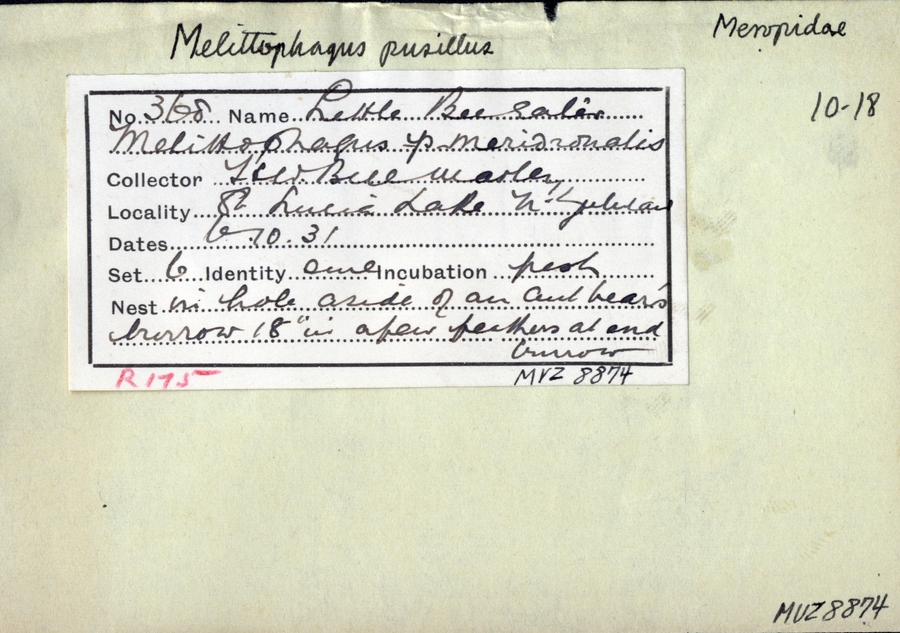 Melittophagus pusillus
Meropidae
10-18
No. 368 Name Little Bee Eater
Melittophagus p. meridionalis
Collector H W Bell Marley
Locality St Lucia Lake N. Zululand
Dates 6.10.31
Set 6 Identity cure Incubation fresh
Nest in hole aside of an ant bear's
burrow 18" in a few feathers at end
burrow
R 175
MVZ 8874
MVZ 8874